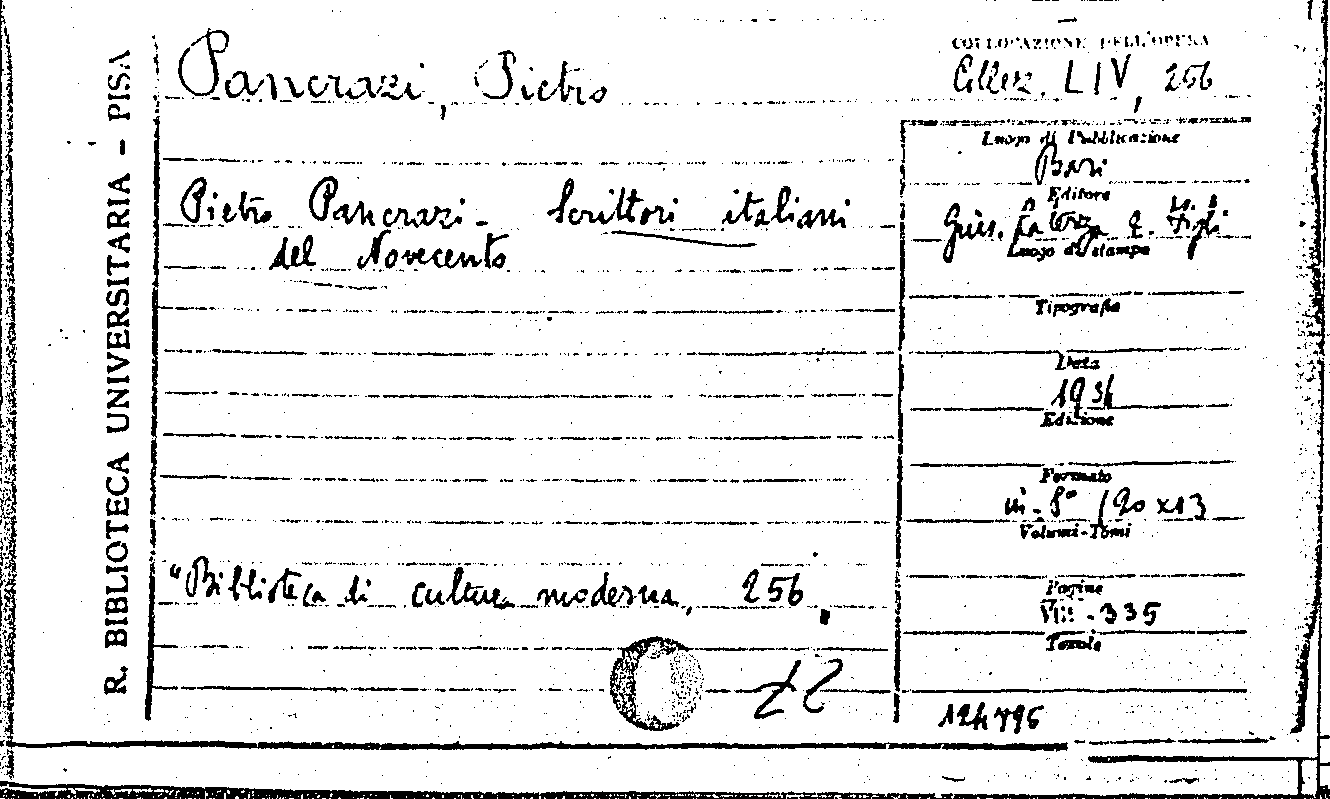 R. BIBLIOTECA UNIVERSITARIA – PISA
Pancrazi, Pietro
COLLOCAZIONE DELL'OPERA
Collez. LIV, 256
Pietro Pancrazi - Scrittori italiani
del Novecento
"Biblioteca di cultura moderna, 256
Luogo di Pubblicazione
Bari
Editore
Gius. Laterza e Figli
Luogo di stampa
Tipografia
Data
1934
Edizione
Formato
in-8° (20x13
Volumi-Tomi
Pagine
VIII-335
Tavole